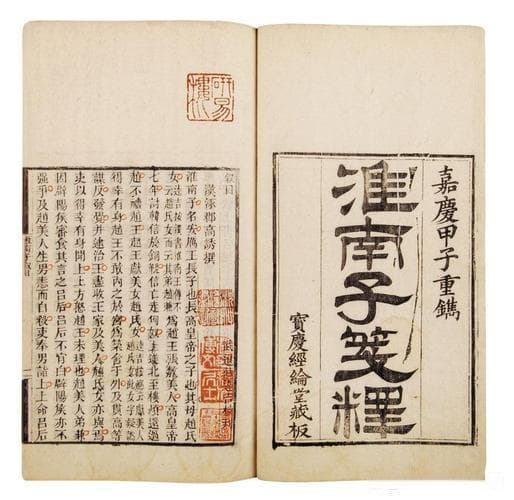 嘉慶甲子重鐫
淮南子箋釋
寶慶經綸堂藏板
研易樓
敘目
漢涿郡高誘撰
淮南子名安厲王長子也長高皇帝之子也其母趙氏
女
為趙王張敖美人高皇帝
七年討韓信於銅鞮信亡走匈奴上遂北至樓煩還過
趙不禮趙王趙王獻美女趙氏女
得幸有身趙王不敢內之於宮為築舍于外及貫高等
謀反發覺并逮治王盡收王家及美人趙氏女亦與焉
吏以得幸有身聞上上方怒趙王未理也趙美人弟兼
因辟陽侯審食其言之呂后呂后不肯白辟陽侯亦不
強爭及趙美人生男恚而自殺吏奉男詣上上命呂后